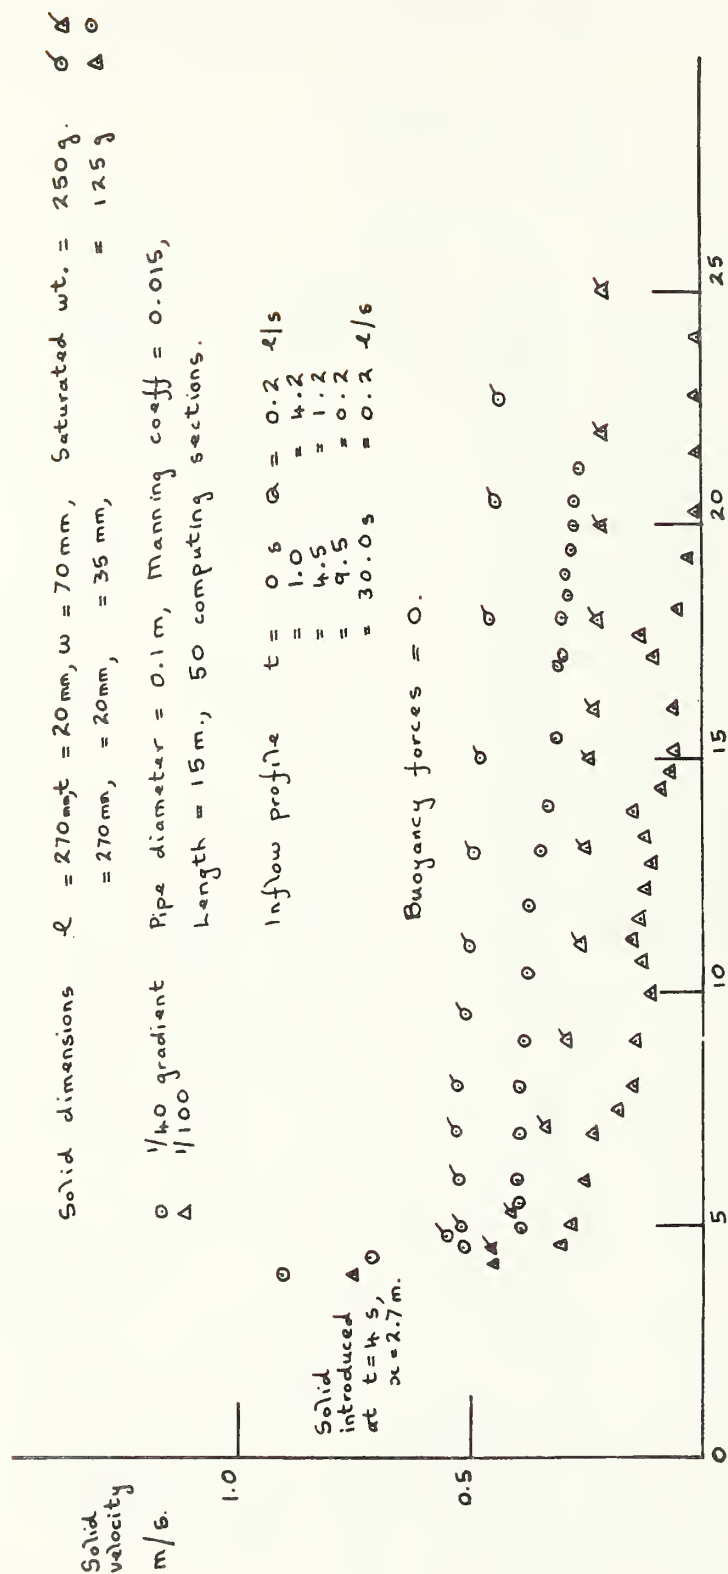 Solid dimensions l = 270mm, t = 20mm, w = 70mm, Saturated wt. = 250g.
= 270mm, = 20mm, = 35mm, = 125g
1/40 gradient Pipe diameter = 0.1m, Manning coeff = 0.015,
1/100 Length = 15m., 50 computing sections.
Inflow profile t = 0 s Q = 0.2 l/s
= 1.0 = 4.2
= 4.5 = 1.2
= 9.5 = 0.2
= 30.0s = 0.2 l/s
Buoyancy forces = 0.
Solid
velocity
m/s.
1.0
0.5
Solid
introduced
at t=4s,
x=2.7m.
0 5 10 15 20 25